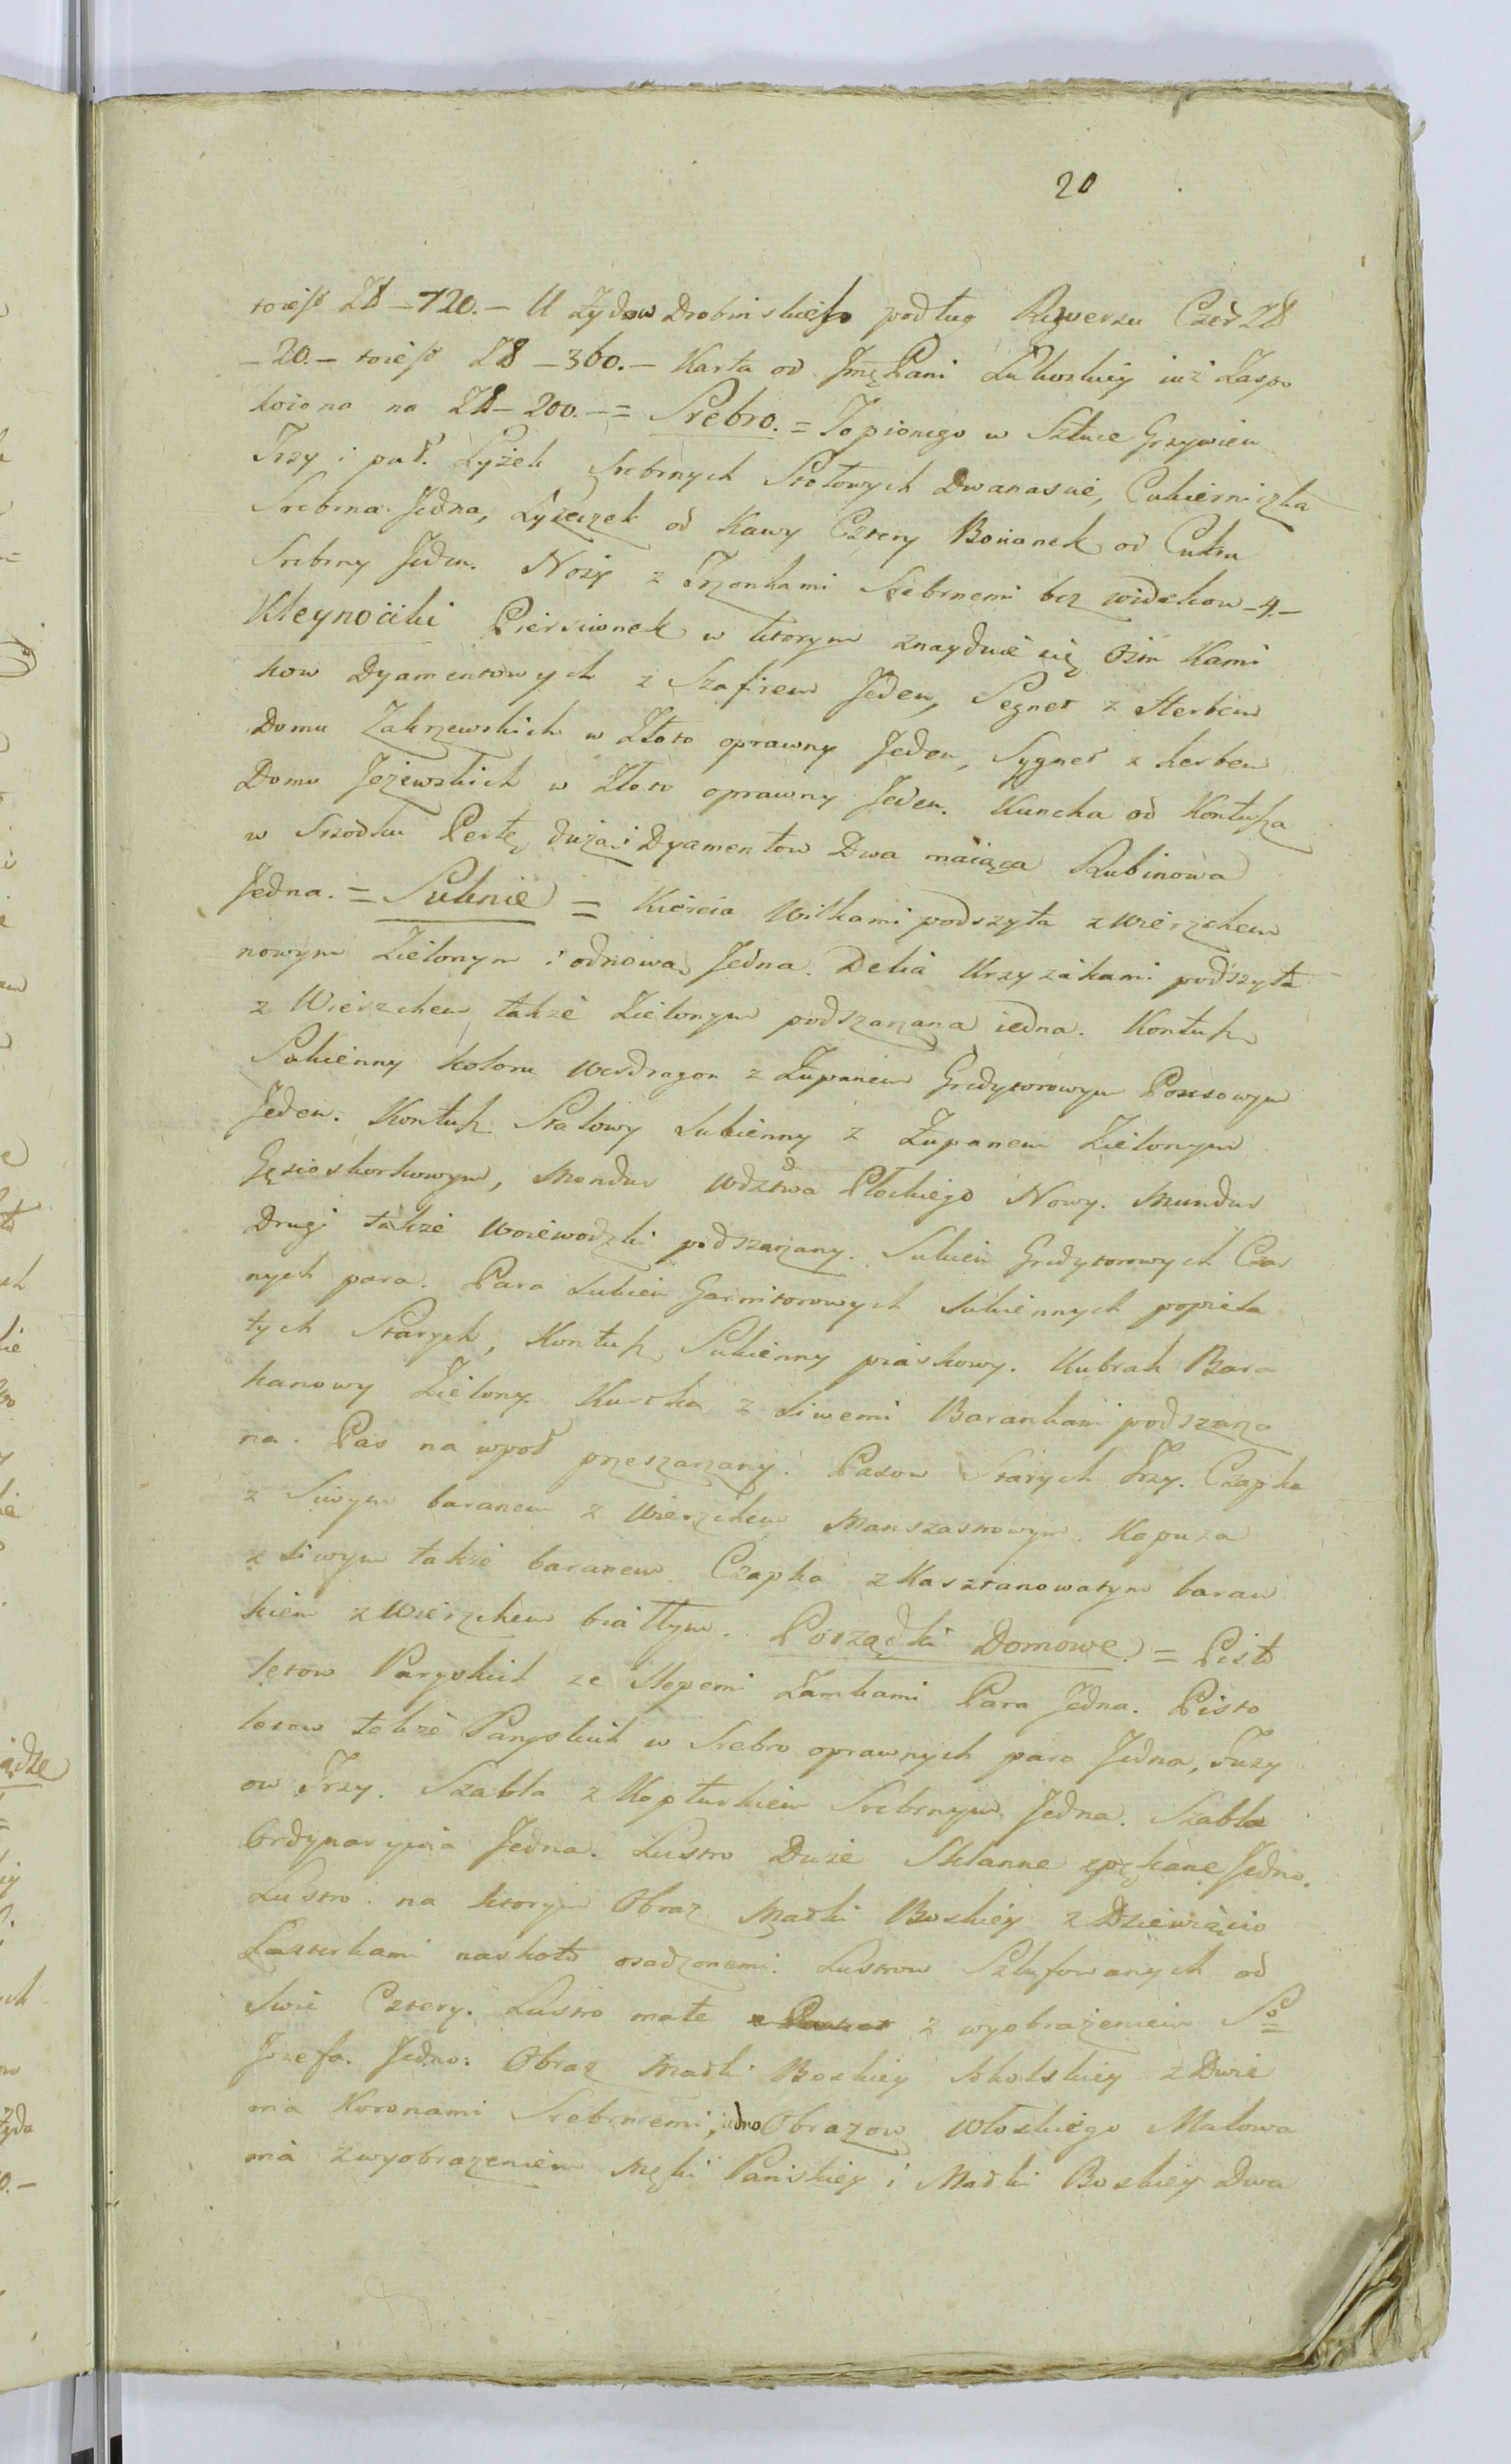 20
toiest Zł – 720. – U Zydow Drobinskiego podług Rewersu Czer Zł
– 20. – toiest Zł – 360. – Karta od Jmę Pani Lukoskiy iuż Zaspo
koiona na Zł – 200. – = Srebro. = Topionego w Sztuce Grzywien
Trzy i puł. Łyżek Srebrnych Stołowych Dwanascie, Cukierniczka
Srebrna Jedna, Łyzeczek od Kawy Cztery Bocianek od Cukru
Srebrny Jeden. Noży z Trzonkami Srebrnemi bez widelcow – 4. –
Kleynociki Piersiionek w ktorym znayduie się Ośm Kami
kow Dyamentowych z Szafirem Jeden, Segnet z Herbem
Domu Zakrzewskich w Złoto oprawny Jeden, Sygnet z herbem
Domu Jeżewskich w Złoto oprawny Jeden. Kuncha od Kontusza
w Srzodku Perłę dużą i Dyamentow Dwa maiąca Rubinowa
Jedna. = Suknie = Kiercia Wilkami podszyta z Wierzchem
nowym Zielonym i odnową Jedna. Delia Krzyżakami podszyta
z Wierzchem także Zielonym podszarzana iedna. Kontusz
Sukienny koloru Wesdragon z Żupanem Grydytorowym Ponsowym
Jeden. Kontusz Stalowy Sukienny z Żupanem Zielonym
Gęsioskorkowym, Mondur Wdztwa Płockiego Nowy. Mundur
Drugi także Woiewodzki podszarzany. Sukien Grydytorowych Czar
nych para. Para Sukien Garnitorowych Sukiennych popiela
tych Starych, Kontusz Sukienny piaskowy. Kubrak Bara
kanowy Zielony. Kurtka z Siwemi Barankami podszarza
na. Pas na wpoł przeszarzany. Pasow Starych Trzy. Czapka
z Siwym baranem z Wierzchem Manszastrowym. Kapuza
z siwym także baranem. Czapka z Kasztanowatym baran
kiem z Wierzchem białłym. Porządki Domowe. = Pisto
letow Paryskich ze Slepemi Zamkami Para Jedna. Pisto
letow także Paryskich w Srebro oprawnych para Jedna, Fuzy
ow Trzy. Szabla z Kapturkiem Srebrnym Jedna. Szabla
Ordynaryina Jedna. Lustro Duże Sklanne zpękane Jedno.
Lustro na ktorym Obraz Matki Boskiey z Dziewiącio
Lusterkami naokoło osadzonemi. Lustrow Szlufowanych od
Swic Cztery. Lustro małe z wyobrażeniem So
Jozefa. Jedno. Obraz Matki Boskiey Skolskiey z Dwie
ma Koronami Srebrnemi, iedno Obrazow Włoskiego Malowa
nia z wyobrazeniem Męki Pańskiey i Matki Boskiey Dwa